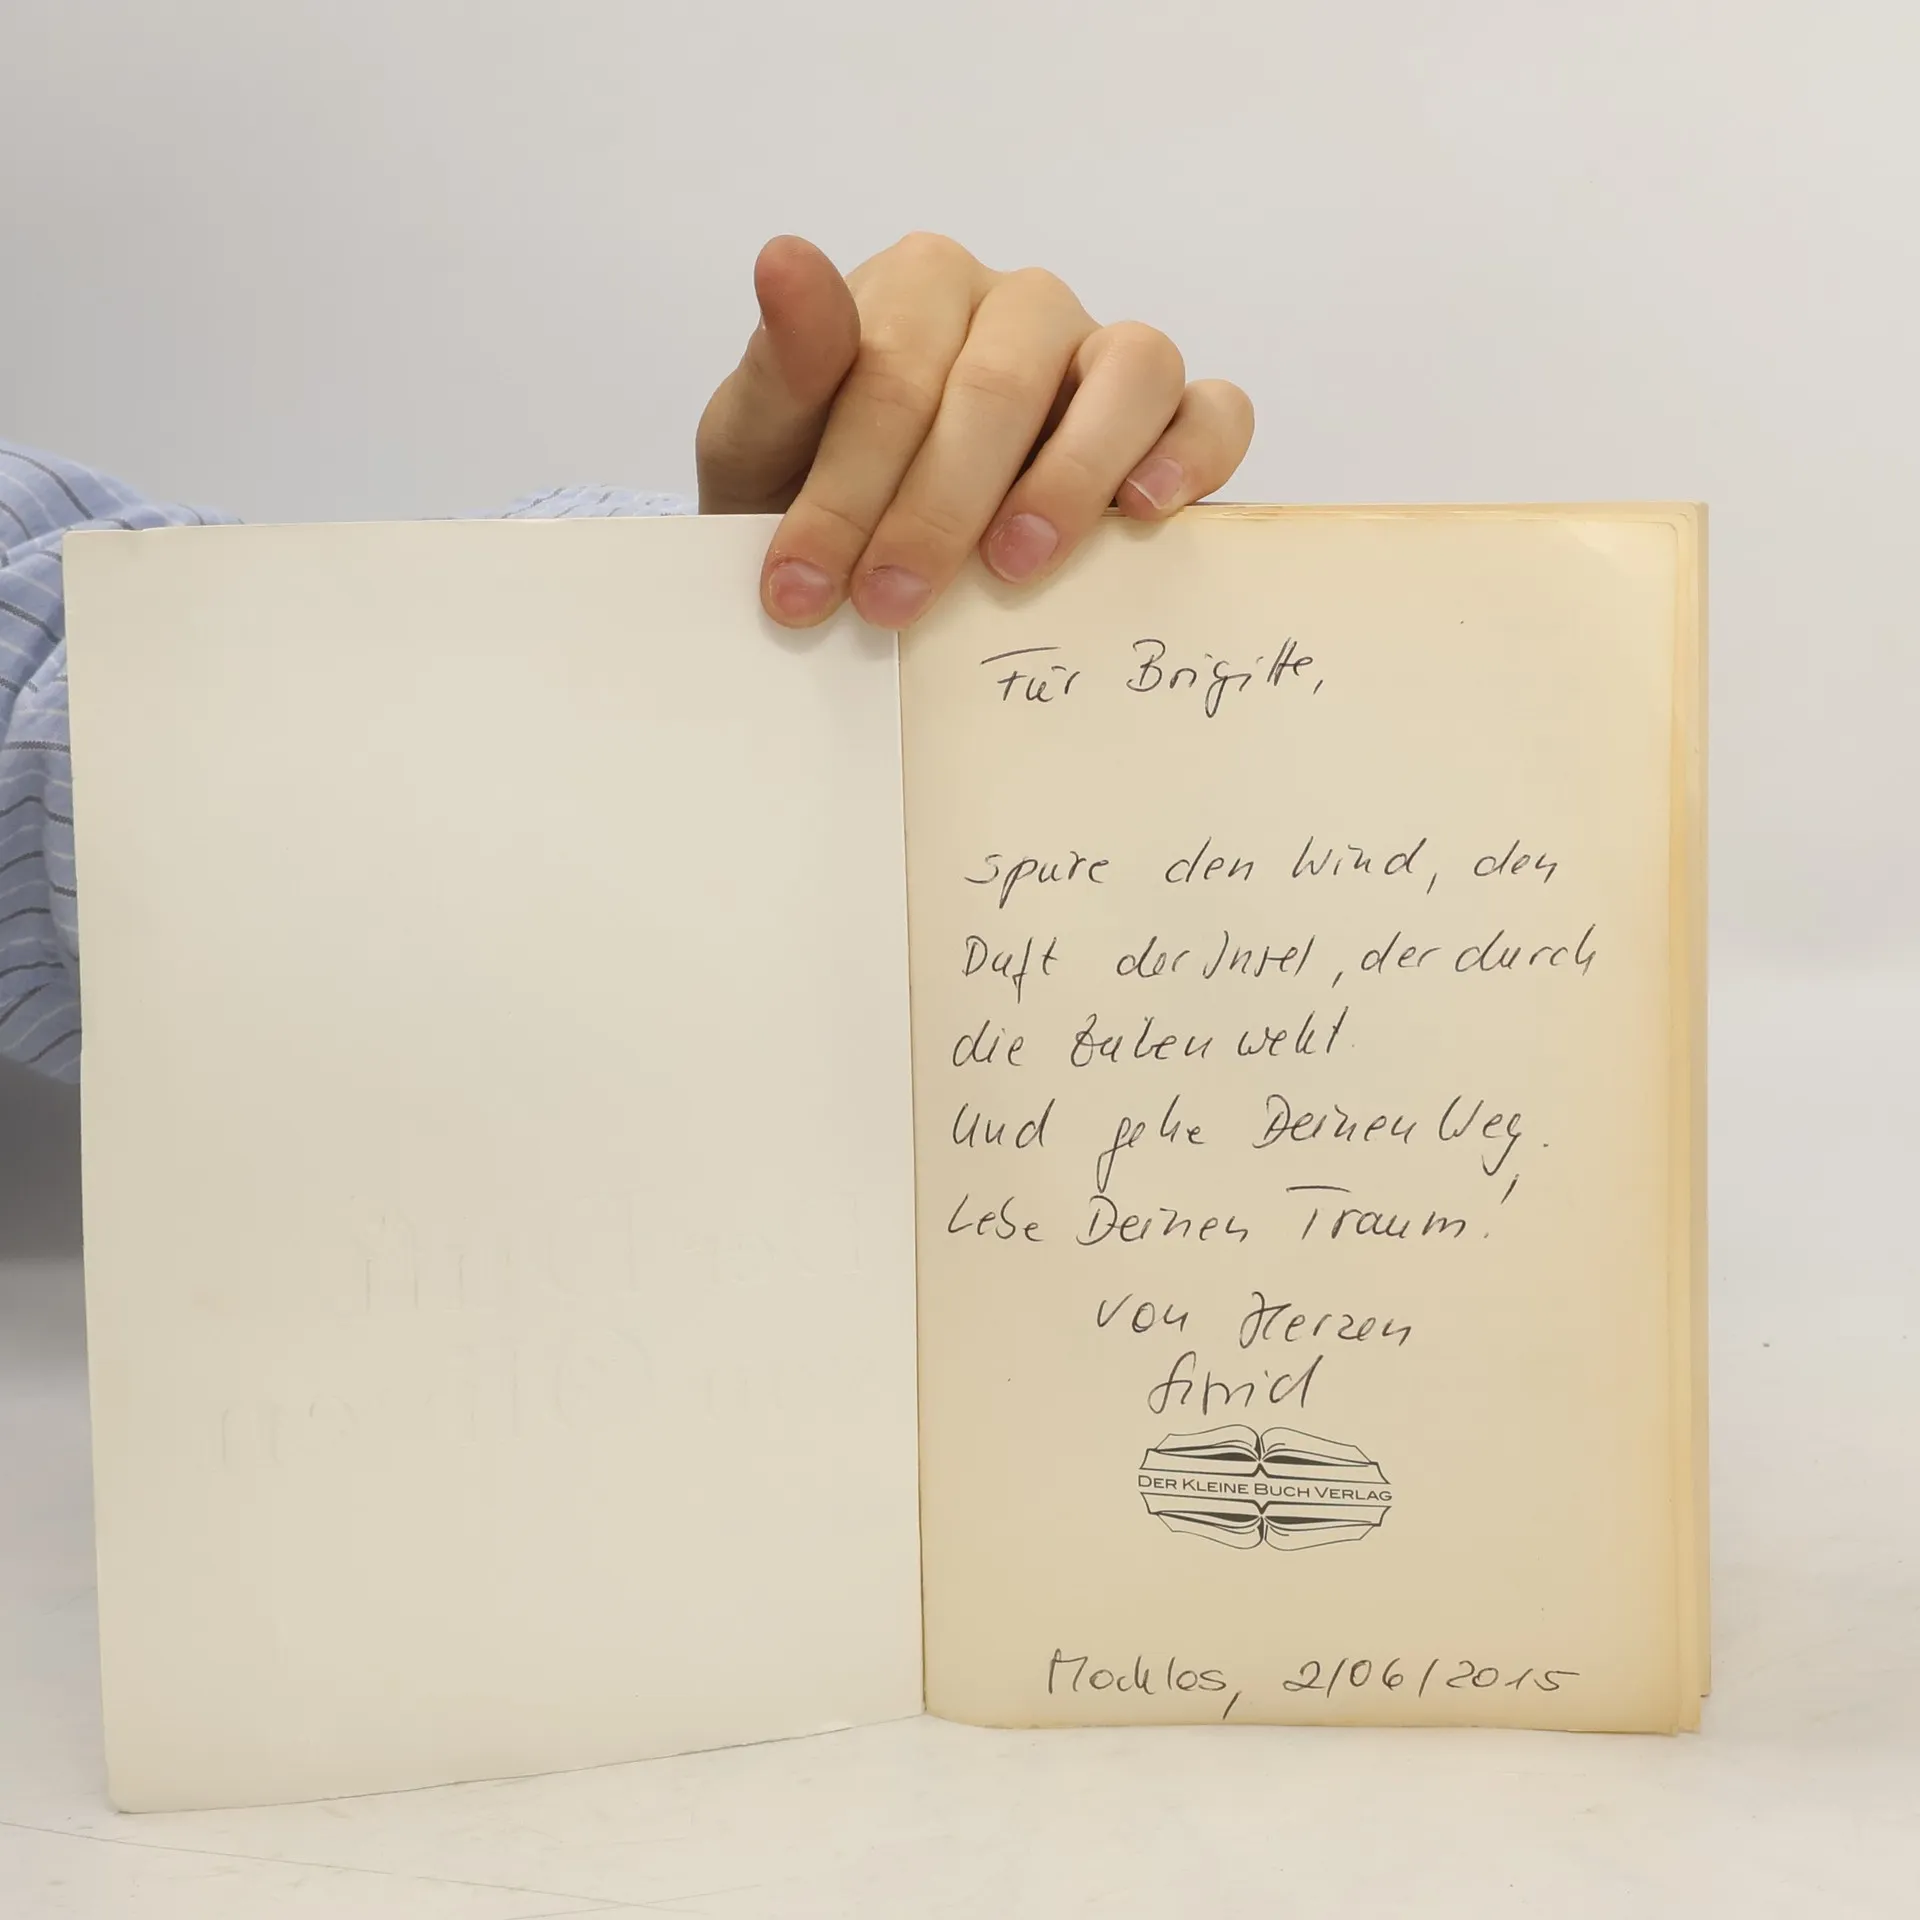 Für Brigitte,
spüre den Wind, den
Duft der Insel, der durch
die Zeilen weht.
Und gehe Deinen Weg,
Lebe Deinen Traum!
von Herzen
DER KLEINE BUCH VERLAG
Mochlos, 2/06/2015